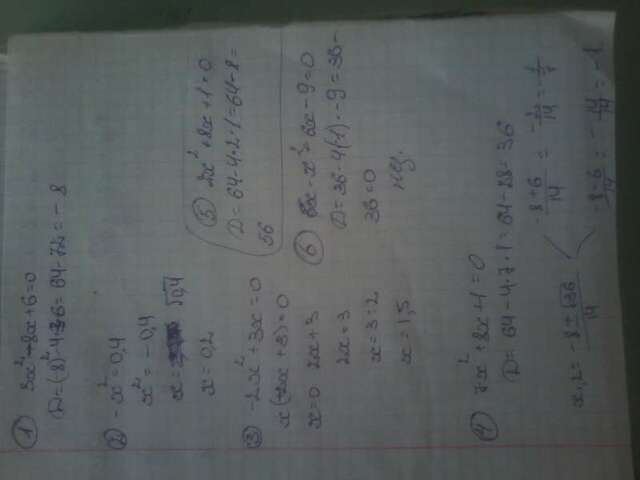 ① 3x²-8x+6=0
D=(8)²-4·3·6=64-72=-8
② -x²=0,4
x²=-0,4
x= √0,4
x=0,2
③ -2x²+3x=0
x(-2x+3)=0
x=0 2x+3
2x=3
x=3:2
x=1,5
④ 7x²+8x+1=0
D=64-4·7·1=64-28=36
x₁,₂= -8±√36 / 14
-8+6 / 14 = -2/14 = -1/7
-8-6 / 14 = -14/14 = -1
⑤ 2x²+8x+1=0
D=64-4·2·1=64-8=
56
⑥ -x²+6x-9=0
D=36-4(-1)·-9=36-
36=0